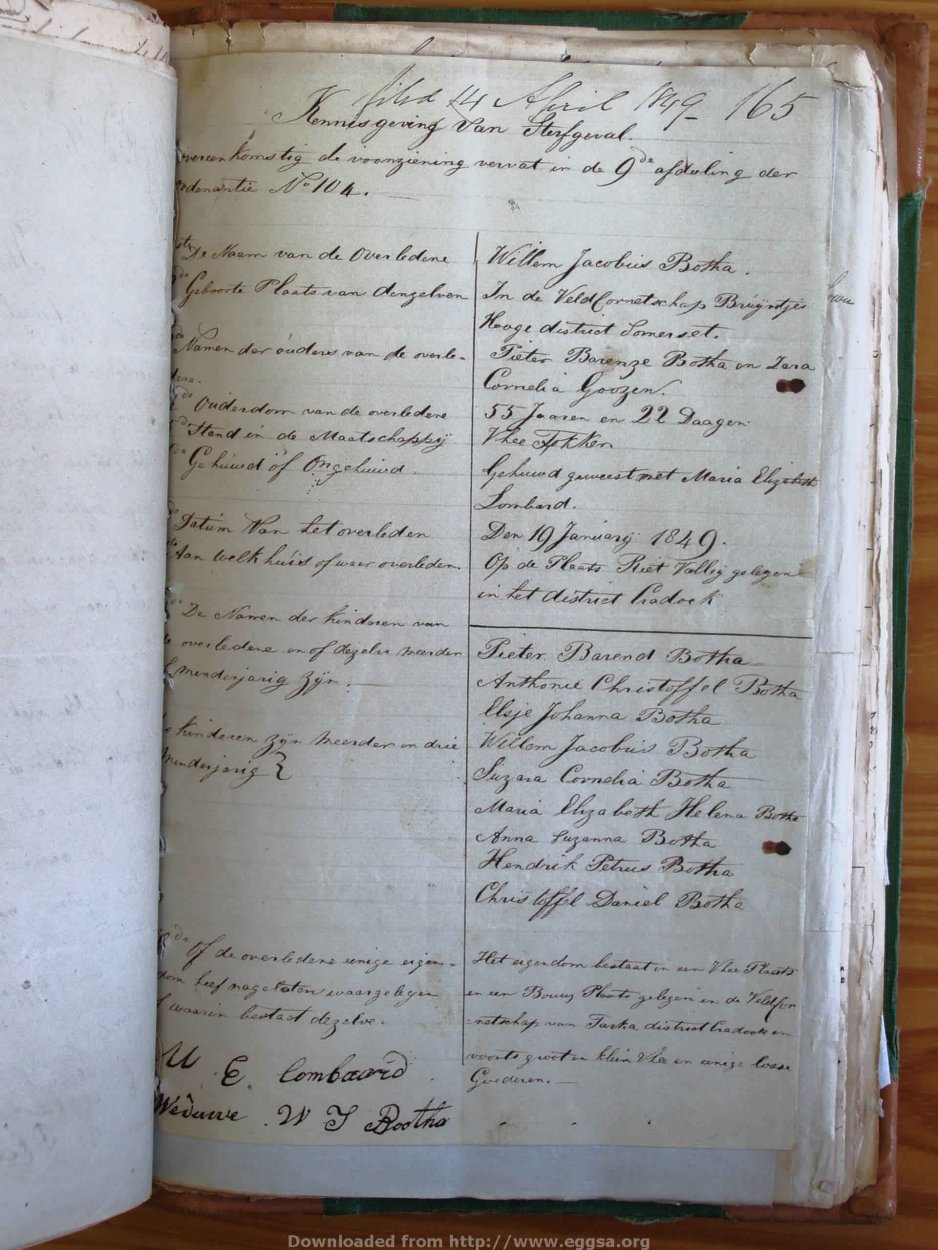 filed 14 April 1849 - 165
Kennisgeving Van Sterfgeval.
vereenkomstig de voorziening vervat in de 9de afdeling der
rdonantie No 104.
De Naam van de Overledene
Willem Jacobus Botha.
Geboorte Plaats van denzelven
In de VeldCornetschap Bruyntjes
Hooge district Somerset.
Namen der ouders van de overle-
dene.
Pieter Barenze Botha en Zara
Cornelia Goozen.
Ouderdom van de overledene
55 Jaaren en 22 Daagen
Stand in de Maatschappy
Vhee Fokker
Gehuwd of Ongehuwd.
Gehuwd geweest met Maria Elizabeth
Lombard.
Datum Van het overleden
Den 19 January 1849.
Aan welk huis of waar overleden.
Op de Plaats Riet Valley gelegen
in het district Cradock
De Namen der kinderen van
overledene en of dezelve meerder
minderjarig zyn.
kinderen zyn meerder en drie
minderjarig }
Pieter Barend Botha
Anthonie Christoffel Botha
Elsje Johanna Botha
Willem Jacobus Botha
Suzara Cornelia Botha
Maria Elizabeth Helena Botha
Anna Suzanna Botha
Hendrik Petrus Botha
Christoffel Daniel Botha
Of de overledene eenige eigen-
dom heef nagelaten waargelegen
waarin bestaat dezelve.
Het eigendom bestaat in een Vhee Plaats
en een Bouw Plaats gelegen in de Veldcor
=netschap van Tarka district Cradock en
voorts groot en klein Vhee en eenige losse
Goederen.
M E Lombaard
Weduwe W J Bootha
Downloaded from http://www.eggsa.org